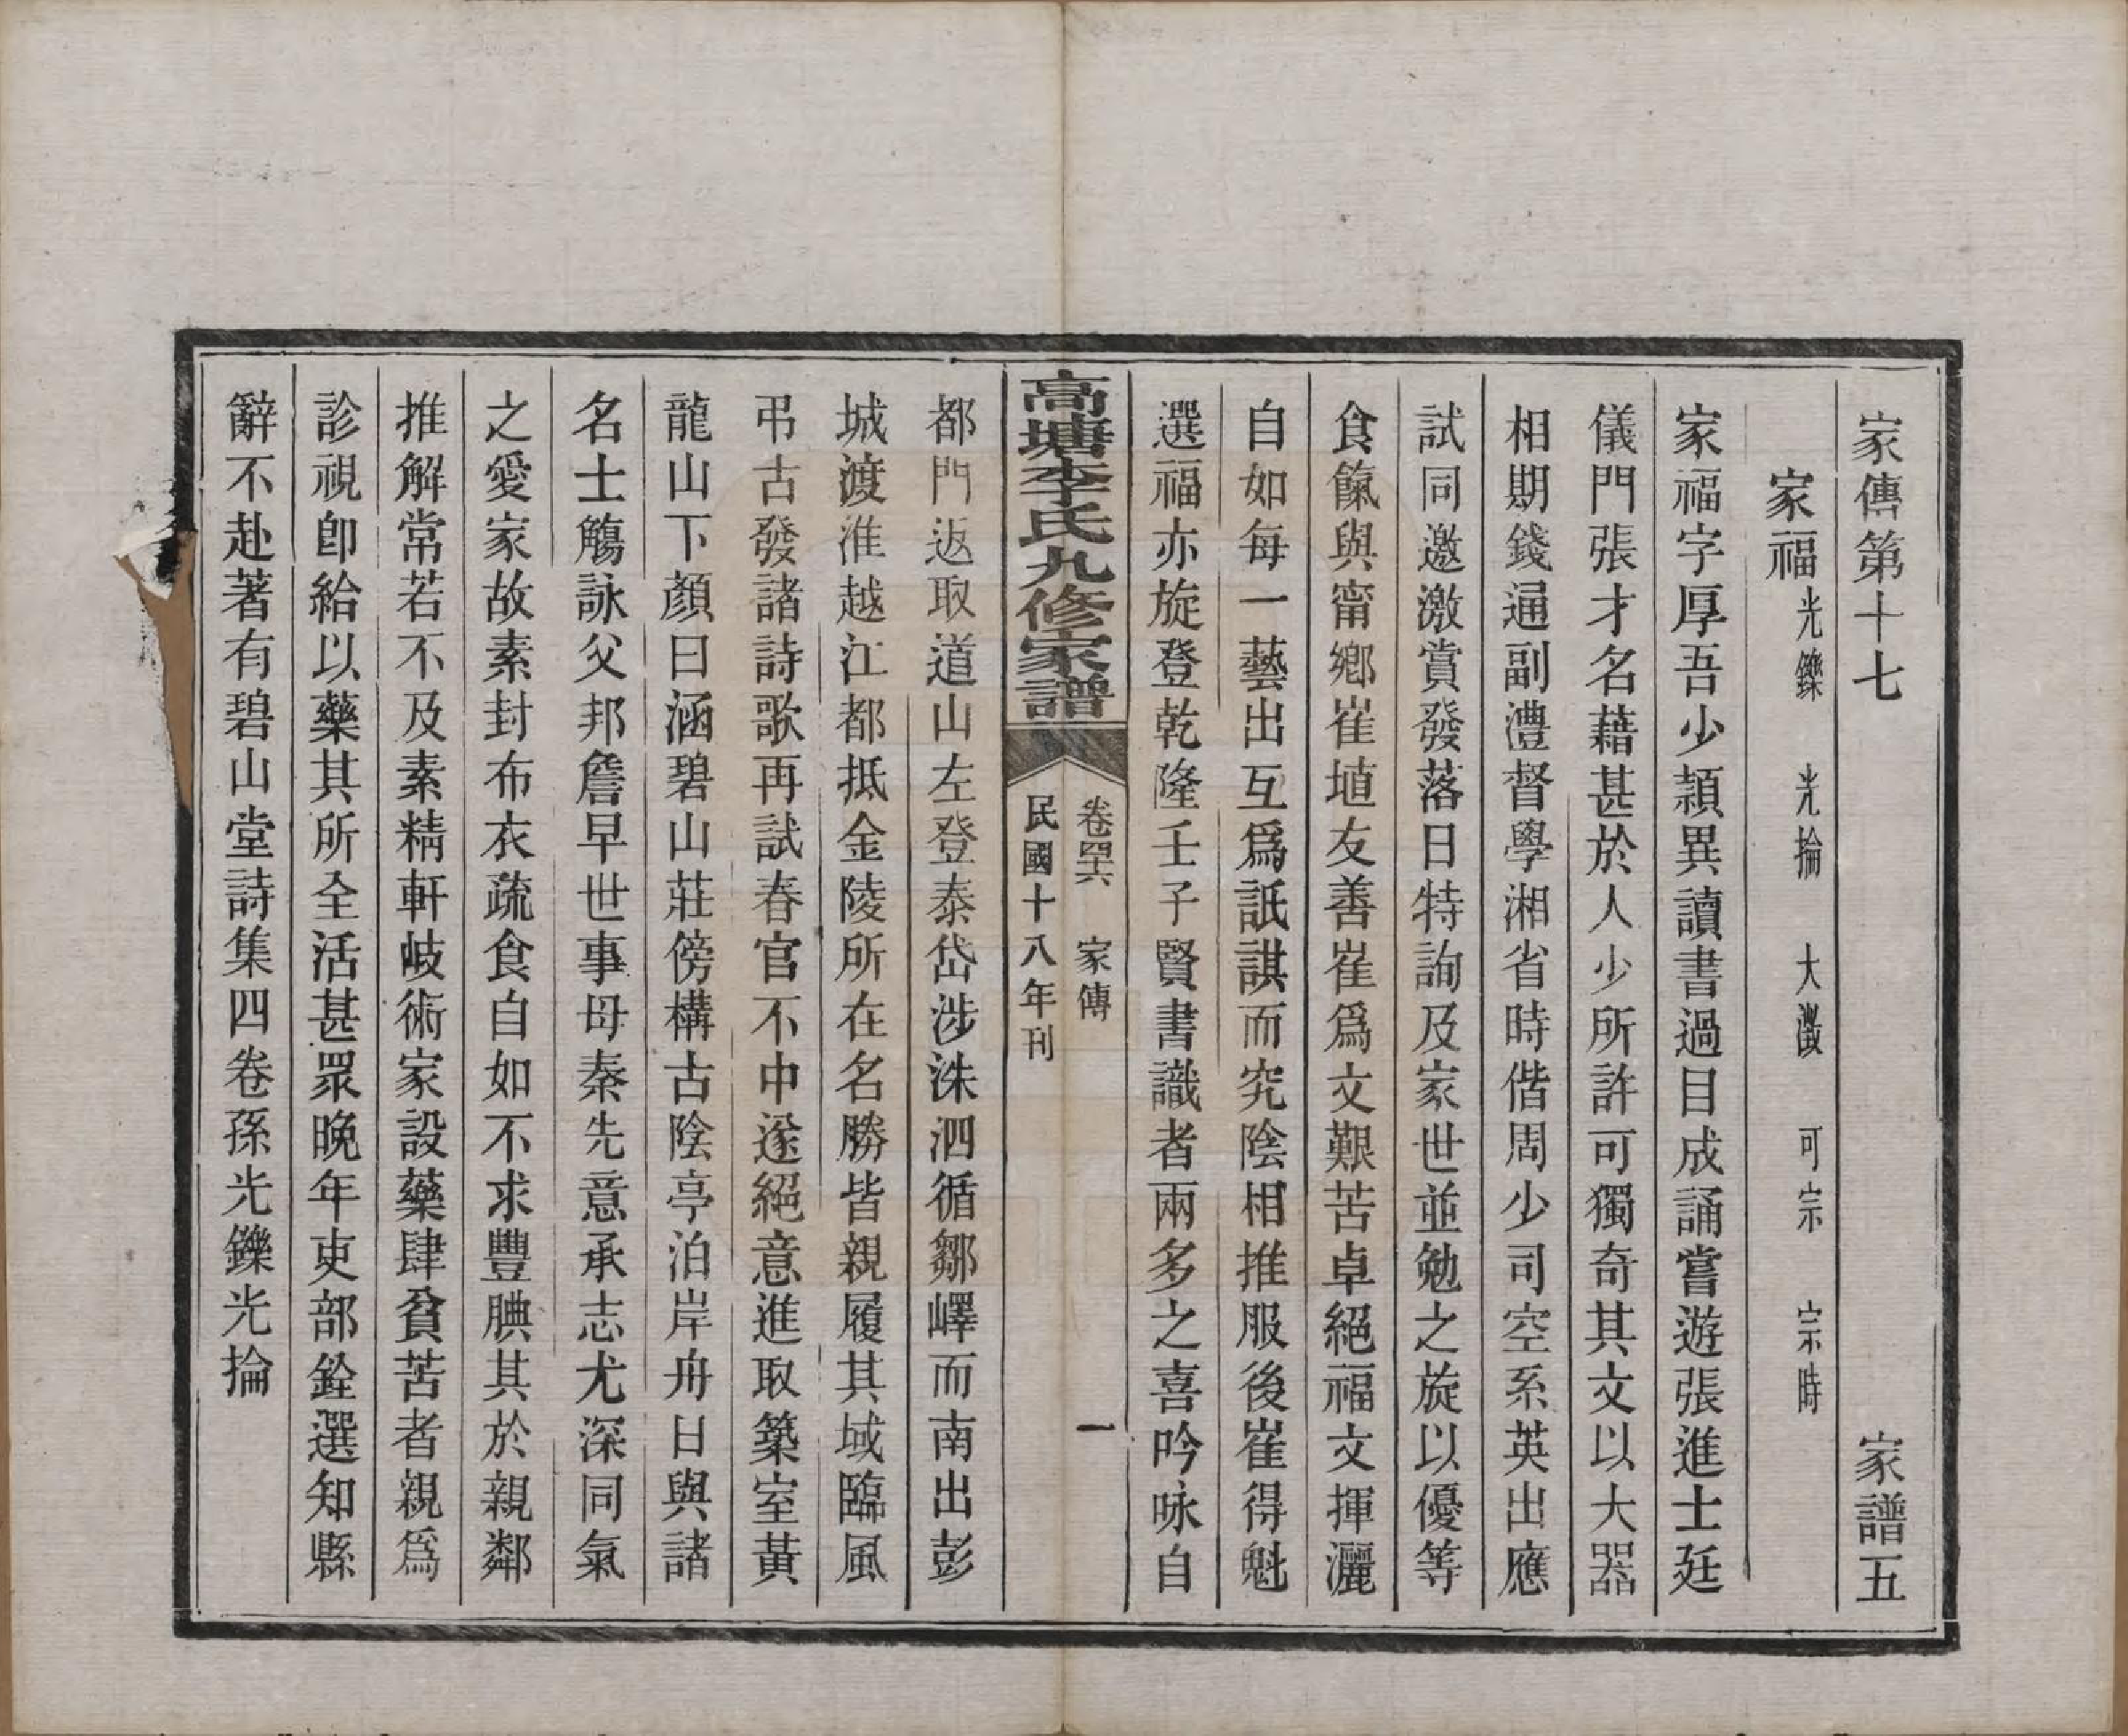 家傳第十七　家譜五
家福 光鑠 光掄 大澂 可宗 宗時
家福字厚吾少穎異讀書過目成誦嘗遊張進士廷
儀門張才名藉甚於人少所許可獨奇其文以大器
相期錢通副灃督學湘省時偕周少司空系英出應
試同邀激賞發落日特詢及家世並勉之旋以優等
食餼與甯鄉崔埴友善崔爲文艱苦卓絕福文揮灑
自如每一藝出互爲詆諆而究陰相推服後崔得魁
選福亦旋登乾隆壬子賢書識者兩多之喜吟咏自
高塘李氏九修家譜 卷四六 家傳 一 民國十八年刊
都門返取道山左登泰岱涉洙泗循鄒嶧而南出彭
城渡淮越江都抵金陵所在名勝皆親履其域臨風
弔古發諸詩歌再試春官不中遂絕意進取築室黃
龍山下顏曰涵碧山莊傍構古陰亭泊岸舟日與諸
名士觴詠父邦詹早世事母秦先意承志尤深同氣
之愛家故素封布衣疏食自如不求豐腆其於親鄰
推解常若不及素精軒岐術家設藥肆貧苦者親爲
診視卽給以藥其所全活甚眾晚年吏部銓選知縣
辭不赴著有碧山堂詩集四卷孫光鑠光掄